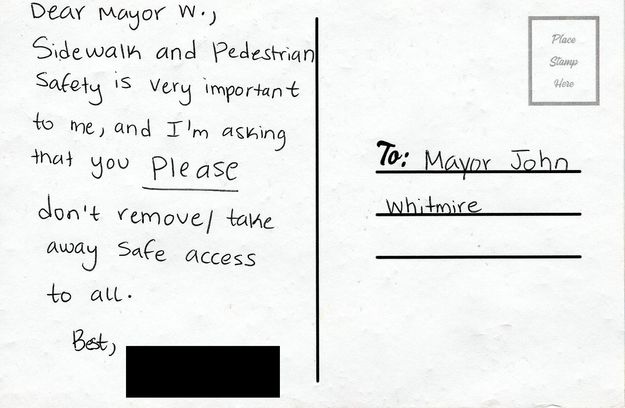 Dear Mayor W.,
Sidewalk and Pedestrian
Safety is very important
to me, and I'm asking
that you Please
don't remove/ take
away safe access
to all.
Best,
Place
Stamp
Here
To: Mayor John
Whitmire